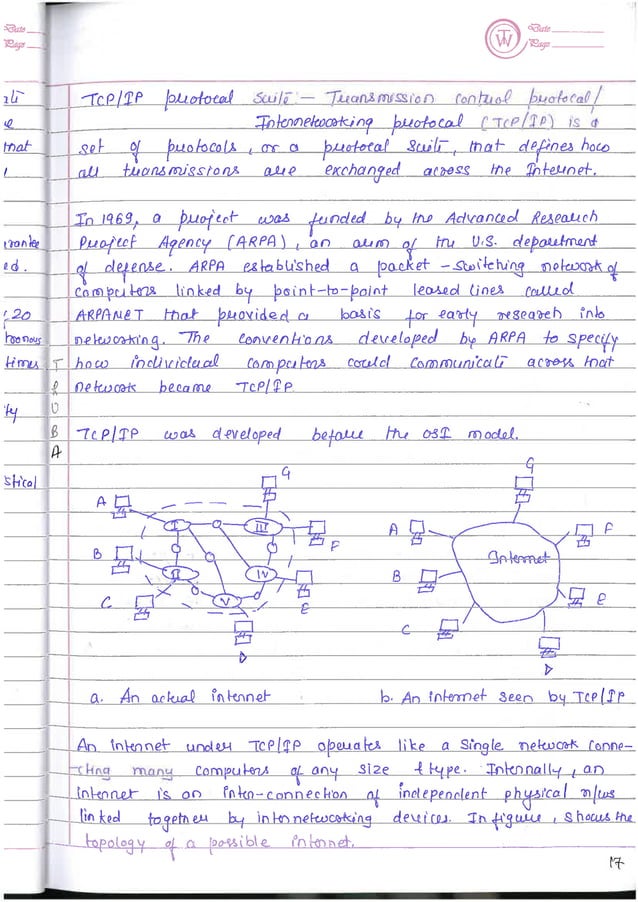 Date
Page
TW
Date
Page
that
ed.
, 20
times
T
R
U
B
A
TCP/IP protocol Suite :- Transmission control protocol/
Internetworking protocol (TCP/IP) is a
set of protocols, or a protocol suite, that defines how
all transmissions are exchanged across the Internet.
In 1969, a project was funded by the Advanced Research
Project Agency (ARPA), an arm of the U.S. department
of defense. ARPA established a packet-switching network of
computors linked by point-to-point leased lines called
ARPANET that provided a basis for early research into
networking. The conventions developed by ARPA to specify
how individual computors could communicate across that
network became TCP/IP
TCP/IP was developed before the OSI model.
G
A
I
III
F
B
II
IV
C
V
E
D
G
A
F
Internet
B
E
C
D
a. An actual internet
b. An internet seen by TCP/IP
An internet under TCP/IP operates like a single network conne-
cting many computors of any size & type. Internally, an
internet is an inter-connection of independent physical n/ws
linked together by internetworking devices. In figure, shows the
topology of a possible internet.
17